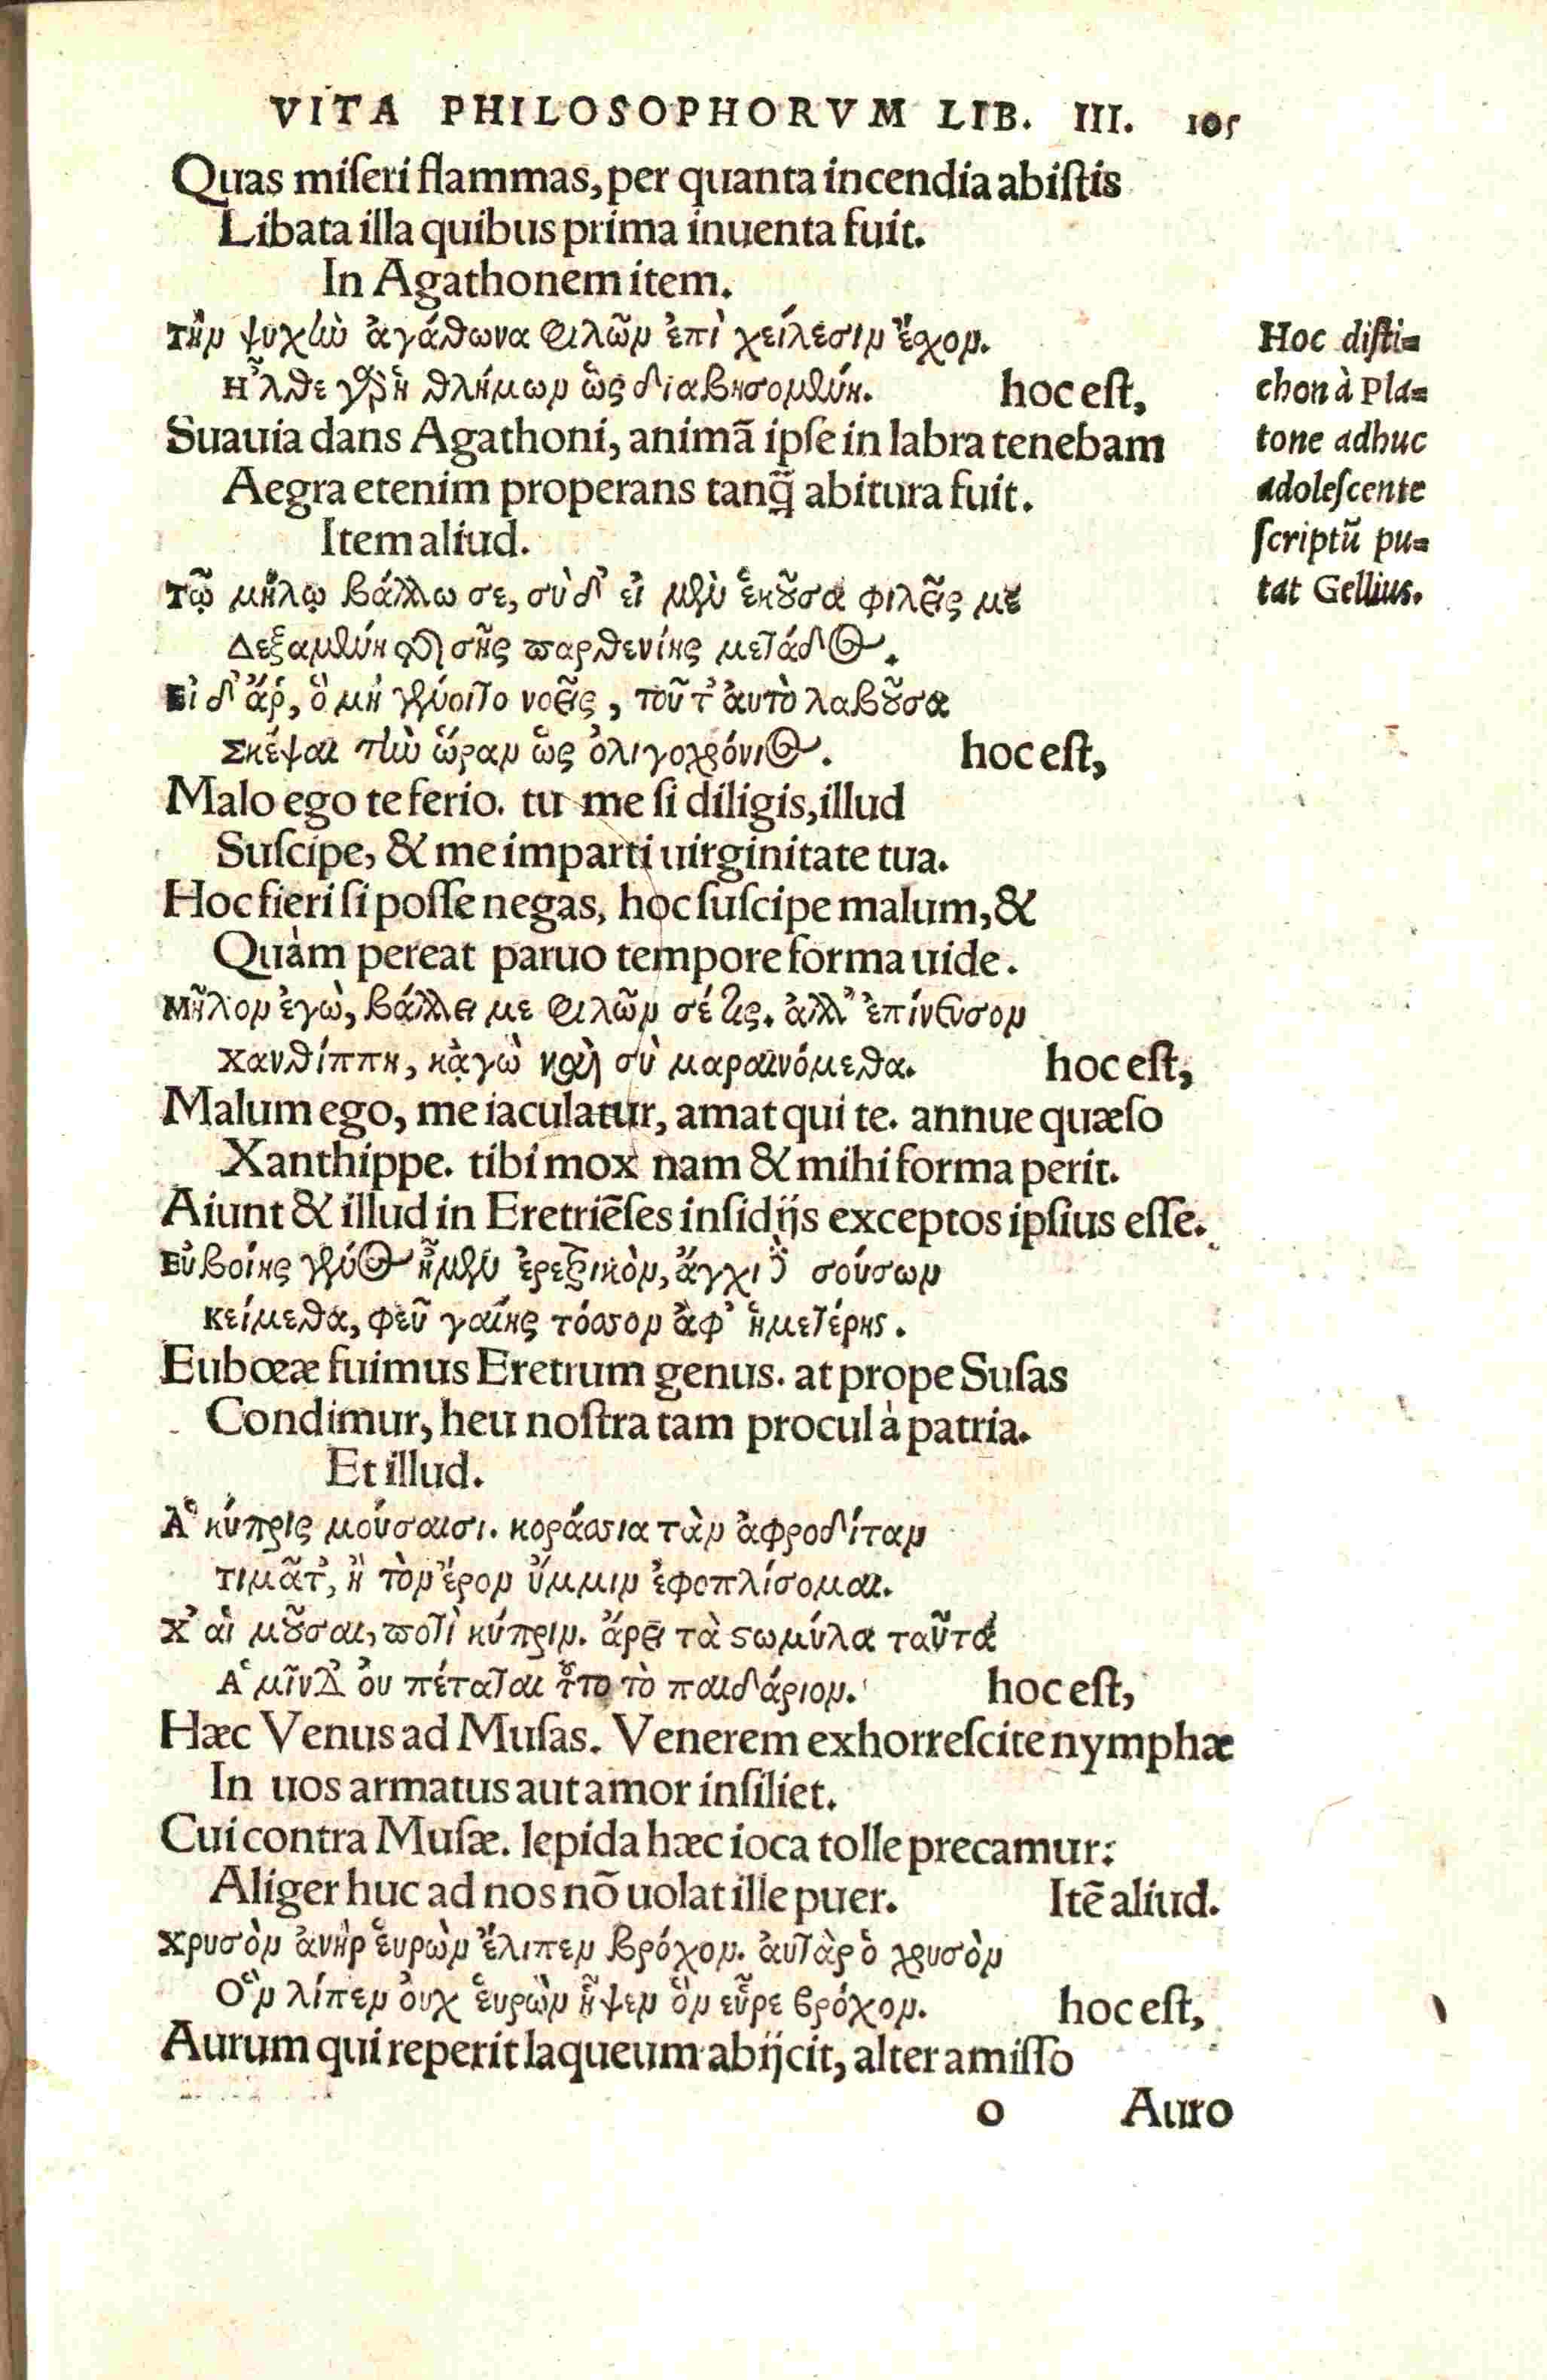 VITA PHILOSOPHORVM LIB. III. 105
Quas miſeri flammas, per quanta incendia abiſtis
Libata illa quibus prima inuenta fuit.
In Agathonem item.
Τὴν ψυχὴν ἀγάθωνα φιλῶν ἐπὶ χείλεσιν ἔχον.
Ἦλθε γὰρ ἡ θλήμων ὡς διαβησομένη. hoc eſt,
Suauia dans Agathoni, animā ipſe in labra tenebam
Aegra etenim properans tanq̃ abitura fuit.
Item aliud.
Τῷ μήλῳ βάλλω σε, σὺ δ' εἰ μὲν ἑκοῦσα φιλεῖς με
Δεξαμένη καὶ σῆς παρθενίης μετάδος.
Εἰ δ' ἄρ, ὃ μὴ γένοιτο νοεῖς, τοῦτ' ἀυτὸ λαβοῦσα
Σκέψαι τὴν ὥραν ὡς ὀλιγοχρόνιος. hoc eſt,
Malo ego te ferio. tu me ſi diligis, illud
Suſcipe, & me imparti uirginitate tua.
Hoc fieri ſi poſſe negas, hoc ſuſcipe malum, &
Quàm pereat paruo tempore forma uide.
Μῆλον ἐγὼ, βάλλει με φιλῶν σέ τις. ἀλλ' ἐπίνευσον
Χανθίππη, κᾀγὼ καὶ σὺ μαραινόμεθα. hoc eſt,
Malum ego, me iaculatur, amat qui te. annue quæſo
Xanthippe. tibi mox nam & mihi forma perit.
Aiunt & illud in Eretriēſes inſidijs exceptos ipſius eſſe.
Εὐβοίης γένος ἦμεν ἐρετρικὸν, ἄγχι δὲ σούσων
Κείμεθα, φεῦ γαίης τόσσον ἀφ' ἡμετέρης.
Eubœæ fuimus Eretrum genus. at prope Suſas
Condimur, heu noſtra tam procul à patria.
Et illud.
Ἁ κύπρις μούσαισι. κοράσσια τὰν ἀφροδίταν
τιμᾶτ', ἢ τὸν ἔρον ὔμμιν ἐφοπλίσομαι.
Χ' αἱ μοῦσαι, ποτὶ κύπριν. ἄρει τὰ στωμύλα ταῦτα
Ἁ μῖν δ' ὀυ πέταται τοῦτο τὸ παιδάριον. hoc eſt,
Hæc Venus ad Muſas. Venerem exhorreſcite nymphæ
In uos armatus aut amor inſiliet.
Cui contra Muſæ. lepida hæc ioca tolle precamur:
Aliger huc ad nos nō uolat ille puer. Itē aliud.
Χρυσὸν ἀνὴρ ἑυρὼν ἔλιπεν βρόχον. ἀυτὰρ ὁ χρυσὸν
Ὃν λίπεν ὀυχ ἑυρὼν ἦψεν ὃν εὗρε βρόχον. hoc eſt,
Aurum qui reperit laqueum abijcit, alter amiſſo
o Auro
Hoc diſti-
chon à Pla-
tone adhuc
adoleſcente
ſcriptū pu-
tat Gellius.